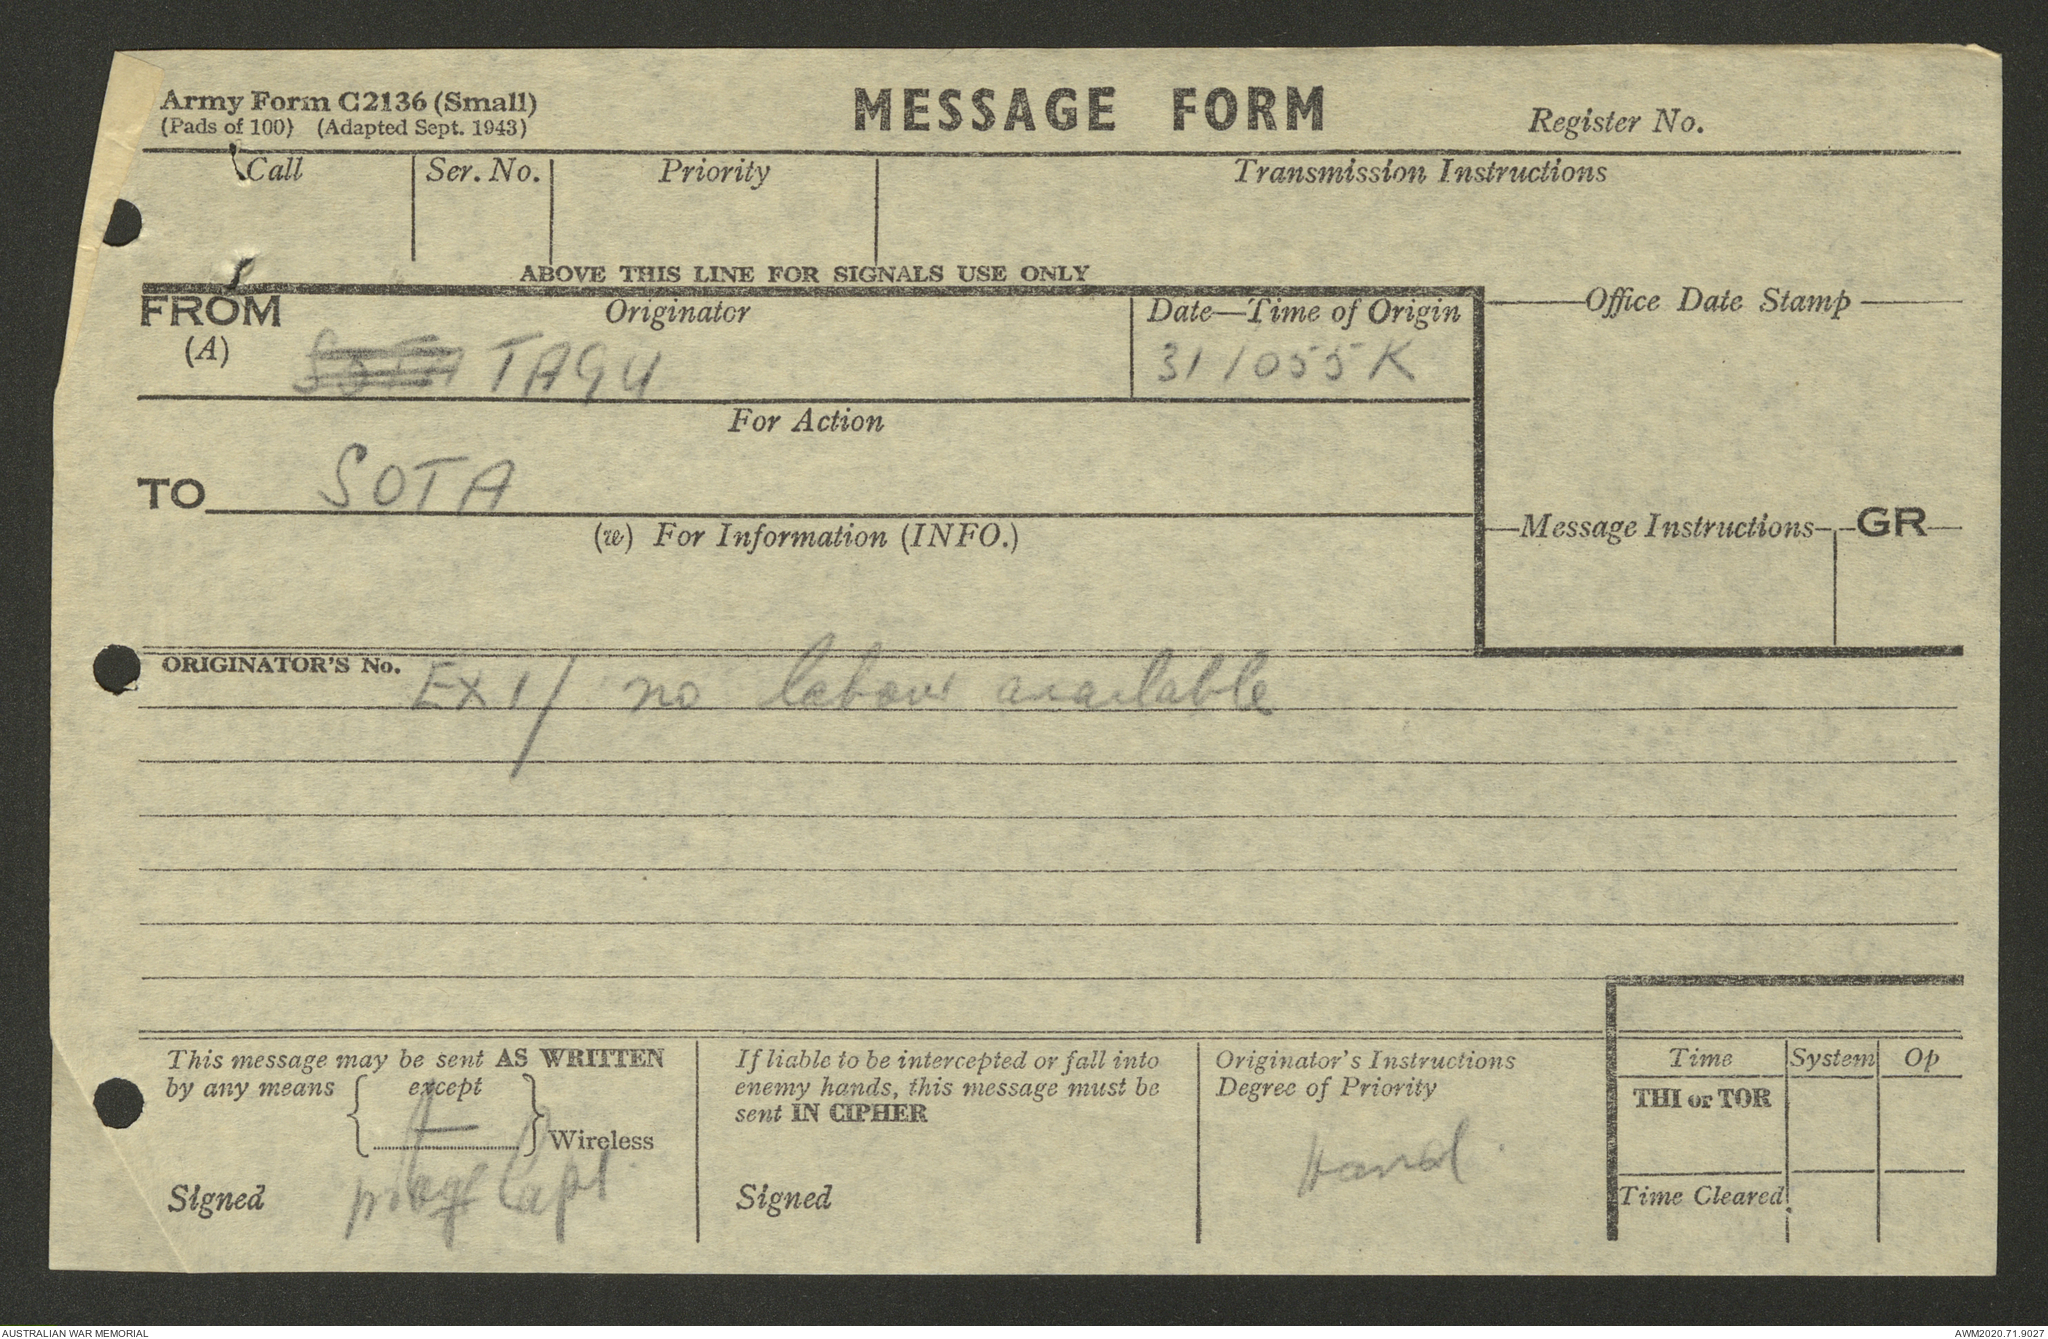 Army Form C2136 (Small)
(Pads of 100) (Adapted Sept. 1943)
MESSAGE FORM
Register No.
Call Ser. No. Priority Transmission Instructions
ABOVE THIS LINE FOR SIGNALS USE ONLY
FROM Originator Date—Time of Origin Office Date Stamp
(A) SOTA TAGU 311055K
For Action
TO SOTA
(w) For Information (INFO.) Message Instructions GR
ORIGINATOR'S No. EX1/ no labour available
This message may be sent AS WRITTEN
by any means except
Wireless
Signed Capt.
If liable to be intercepted or fall into
enemy hands, this message must be
sent IN CIPHER
Signed
Originator's Instructions
Degree of Priority
Hand.
Time System Op
THI or TOR
Time Cleared
AUSTRALIAN WAR MEMORIAL AWM2020.71.9027